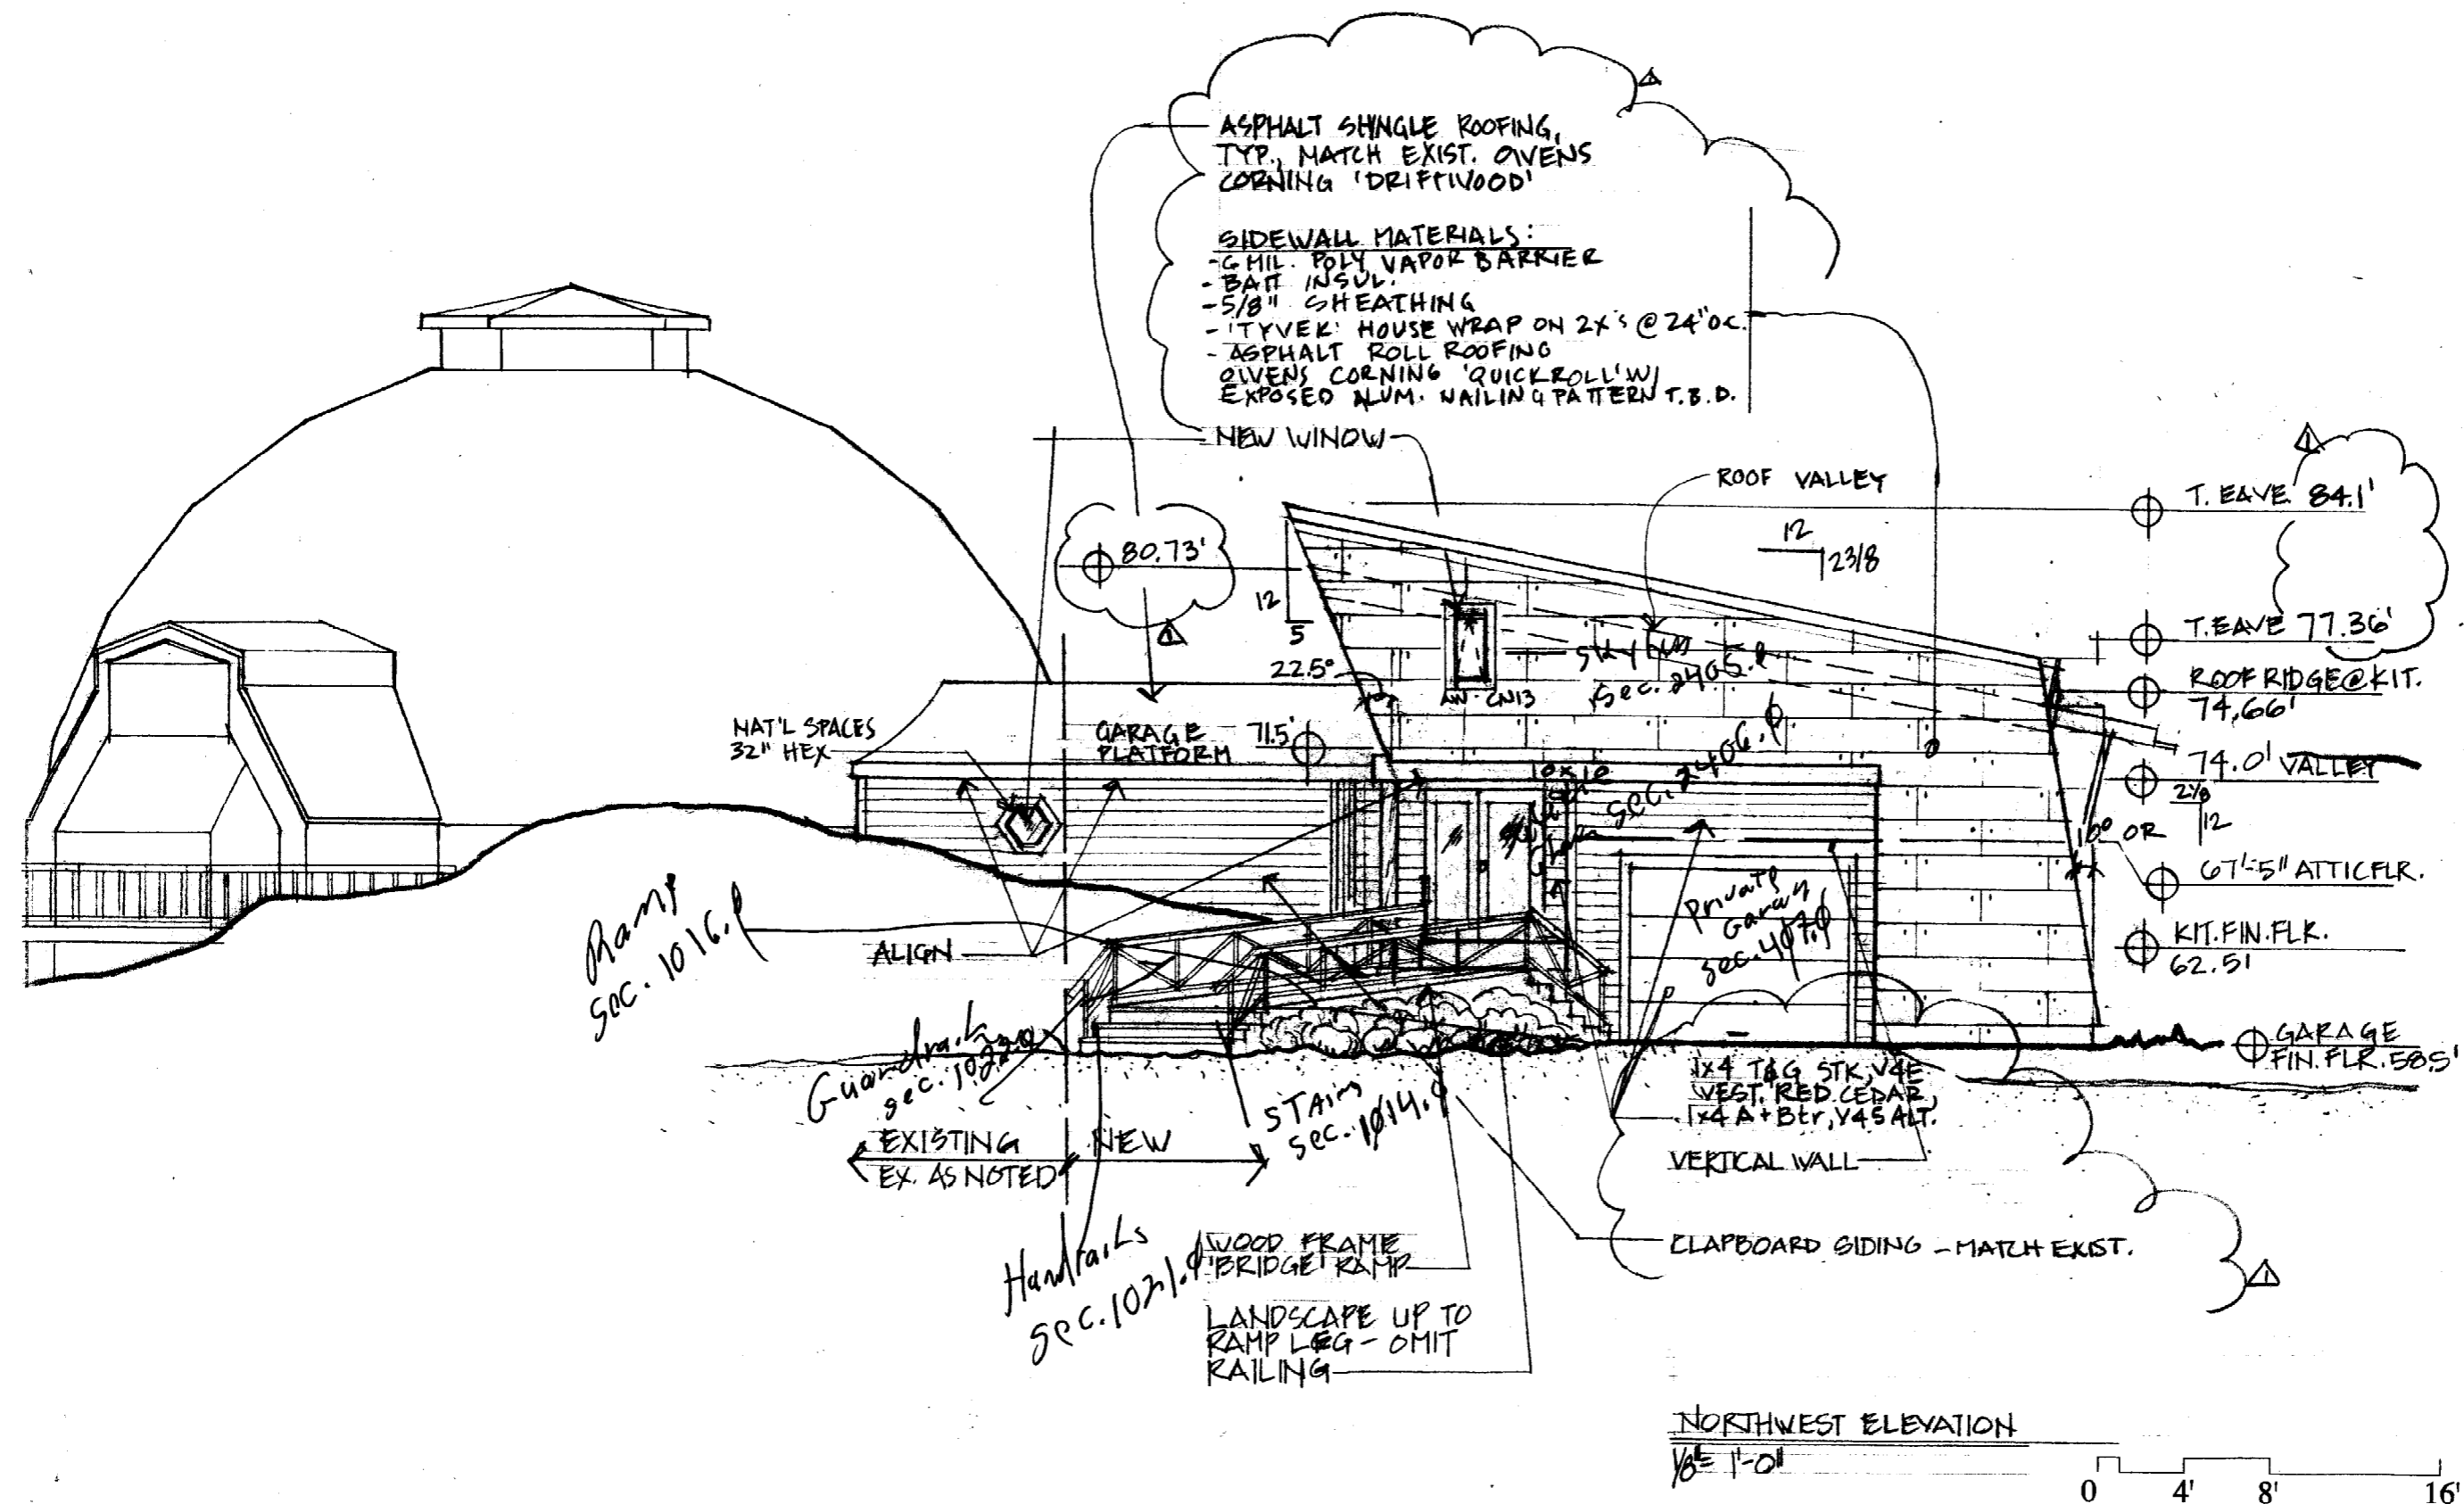 ASPHALT SHINGLE ROOFING,
TYP., MATCH EXIST. OWENS
CORNING 'DRIFTWOOD'
SIDEWALL MATERIALS:
-6 MIL. POLY VAPOR BARRIER
- BATT INSUL.
-5/8" SHEATHING
- 'TYVEK' HOUSE WRAP ON 2X'S @ 24" O.C.
- ASPHALT ROLL ROOFING
OWENS CORNING 'QUICKROLL' W/
EXPOSED ALUM. NAILING PATTERN T.B.D.
NEW WINOW
ROOF VALLEY
12
2 3/8
80.73'
12
5
22.5°
AW-CN13
Sec. 2405.0
T. EAVE 84.1'
T. EAVE 77.36'
ROOF RIDGE @ KIT.
74.66'
74.0' VALLEY
2 1/8
12
10° OR
67'-5" ATTIC FLR.
KIT. FIN. FLR.
62.5'
GARAGE
FIN. FLR. 58.5'
NAT'L SPACES
32" HEX
GARAGE
PLATFORM
71.5'
10x10
Sec. 2406.0
Private
Garage
Sec. 407.0
Ramp
Sec. 1016.0
ALIGN
Guardrails
Sec. 1022.0
STAIRS
Sec. 1014.0
EXISTING
EX. AS NOTED
NEW
Handrails
Sec. 1021.0
WOOD FRAME
'BRIDGE' RAMP
LANDSCAPE UP TO
RAMP LEG - OMIT
RAILING
1x4 T&G STK, V4E
WEST. RED CEDAR,
1x4 A + Btr, V4S ALT.
VERTICAL WALL
CLAPBOARD SIDING - MATCH EXIST.
NORTHWEST ELEVATION
1/8" = 1'-0"
0 4' 8' 16'